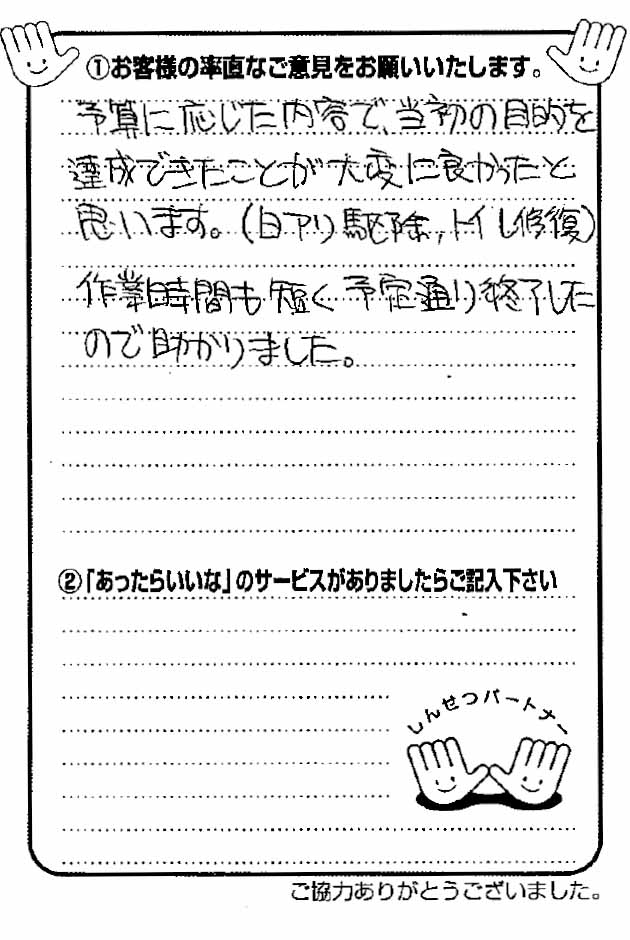 ①お客様の率直なご意見をお願いいたします。
予算に応じた内容で、当初の目的を
達成できたことが大変に良かったと
思います。(白アリ駆除、トイレ修復)
作業時間も短く予定通り終了した
ので助かりました。
②「あったらいいな」のサービスがありましたらご記入下さい
しんせつパートナー
ご協力ありがとうございました。